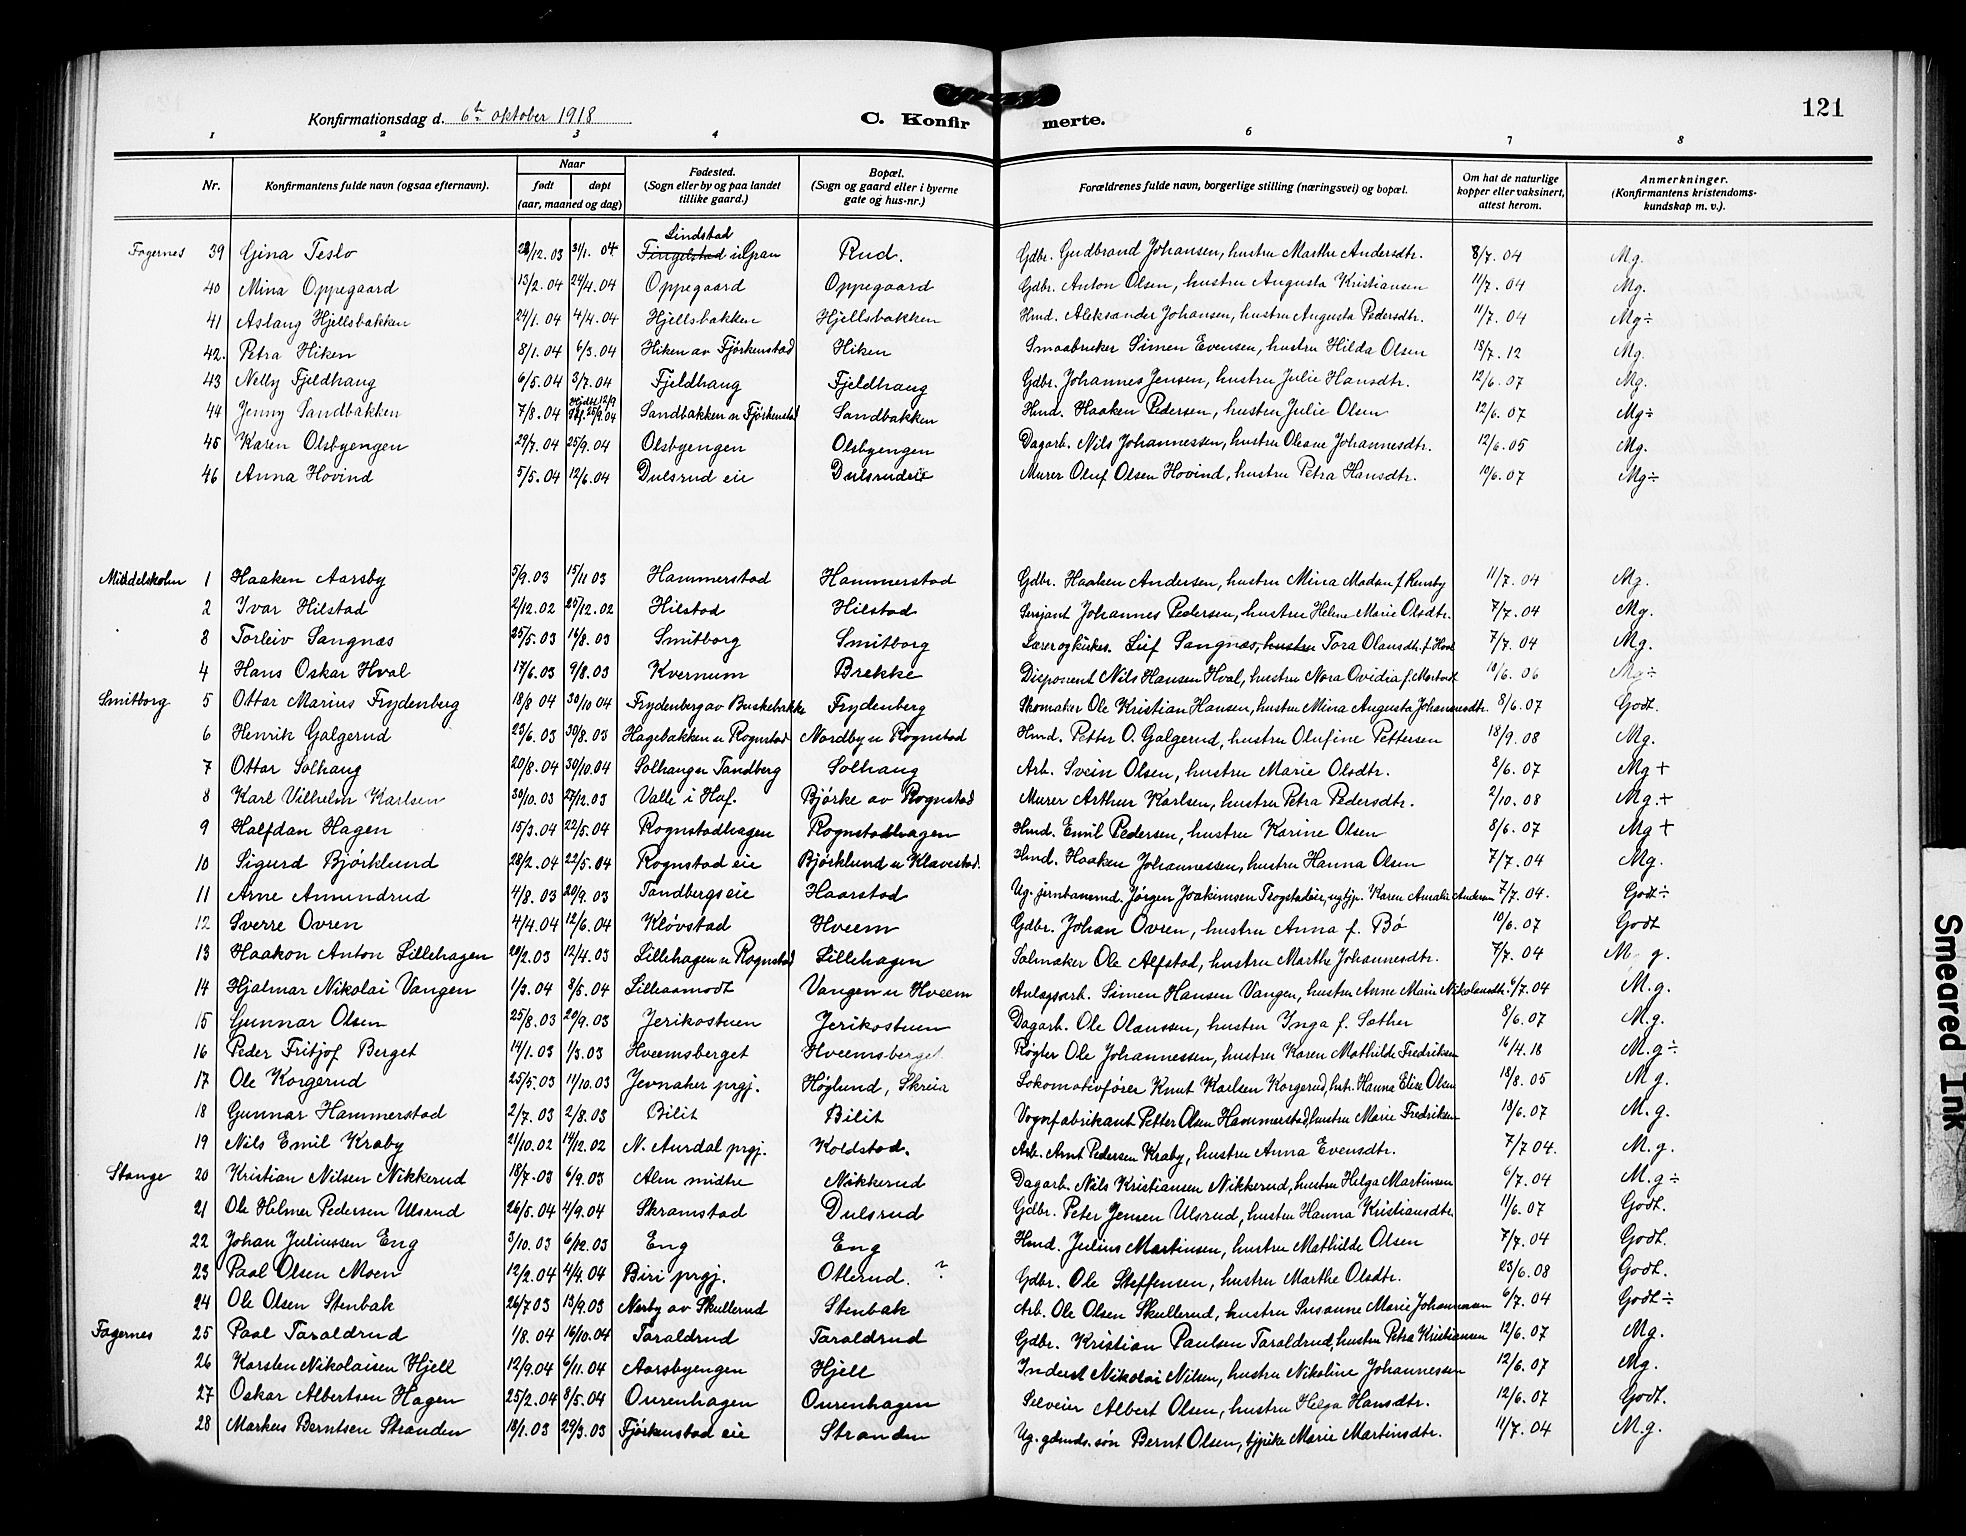 Konfirmationsdag d. 6te oktober 1918 C. Konfirmerte. 121
1 2 3 4 6 7 8
Nr. Konfirmantens fulde navn (ogsaa efternavn). Naar født døpt (aar, maaned og dag) Fødested. (Sogn eller by og paa landet tillike gaard.) Bopæl. (Sogn og gaard eller i byerne gate og hus-nr.) Forældrenes fulde navn, borgerlige stilling (næringsvei) og bopæl. Om hat de naturlige kopper eller vaksinert, attest herom. Anmerkninger. (Konfirmantens kristendomskundskap m. v.).
Fagernes 39 Gina Teslo 28/12.03 31/1.04 Lindstad Fingelstad i Gran Rud. Gdbr. Gudbrand Johansen, hustru Marthe Andersdtr. 8/7.04 Mg.
40 Mina Oppegaard 13/2.04 24/4.04 Oppegaard Oppegaard Gdbr. Anton Olsen, hustru Augusta Kristiansen 11/7.04 Mg.
41 Aslaug Hjellsbakken 24/1.04 4/4.04 Hjellsbakken Hjellsbakken Hmd. Aleksander Johansen, hustru Augusta Pedersdtr. 11/7.04 Mg÷
42. Petra Hiken 8/1.04 6/3.04 Hiken av Fjørkenstad Hiken Smaabruker Simen Evensen, hustru Hilda Olsen 18/7.12 Mg.
43 Nelly Fjeldhaug 6/5.04 3/7.04 Fjeldhaug Fjeldhaug Gdbr. Johannes Jensen, hustru Julie Hansdtr. 12/6.07 Mg.
44 Jenny Sandbakken 7/8.04 25/9.04 Sandbakken u Fjørkenstad Sandbakken Hmd. Haaken Pedersen, hustru Julie Olsen 12/6.07 Mg÷
45 Karen Olsbyengen 29/7.04 25/9.04 Olsbyengen Olsbyengen Dagarb. Nils Johannessen, hustru Oleane Johannesdtr. 12/6.05 Mg.
46 Anna Hovind 5/5.04 12/6.04 Dulsrud eie Dulsrudeie Murer Oluf Olsen Hovind, hustru Petra Hansdtr. 10/6.07 Mg÷
Middelskolen 1 Haaken Aarsby 5/9.03 15/11 03 Hammerstad Hammerstad Gdbr. Haaken Andersen, hustru Mina Modan f. Rensby 11/7.04 Mg.
2 Ivar Hilstad 2/12.02 25/12.02 Hilstad Hilstad Sersjant Johannes Pedersen, hustru Helene Marie Olsdtr. 7/7.04 Mg.
3 Torleiv Sangnæs 25/5.03 16/8.03 Smitborg Smitborg Lærer og kirkes. Leif Sangnæs, hustru Tora Olausdtr. f. Hval 7/7.04 Mg.
4 Hans Oskar Hval 17/6.03 9/8.03 Kvernum Brekke Disponent Nils Hansen Hval, hustru Nora Ovidia f. Morstad 10/6.06 Mg÷
Smitborg 5 Ottar Marius Frydenberg 18/8 04 30/10 04 Frydenberg av Buskebakke Frydenberg Skomaker Ole Kristian Hansen, hustru Mina Augusta Johannesdtr. 8/6.07 Godt.
6 Henrik Galgerud 23/6.03 30/8.03 Hagebakken u Rognstad Nordby u Rognstad Hmd. Petter O. Galgerud, hustru Olufine Pettersen 18/9.08 Mg.
7 Ottar Solhaug 20/8.04 30/10.04 Solhaug u Tandberg Solhaug Arb. Svein Olsen, hustru Marie Olsdtr. 8/6.07 Mg+
8 Karl Vilhelm Karlsen 30/10.03 27/12.03 Valle i Hof. Bjørke av Rognstad Murer Arthur Karlsen, hustru Petra Pedersdtr. 2/10.08 Mg.+
9 Halfdan Hagen 15/3.04 22/5.04 Rognstadhagen Rognstadhagen Hmd. Emil Pedersen, hustru Karine Olsen 8/6.07 Mg+
10 Sigurd Bjørklund 28/2.04 22/5.04 Rognstad eie Bjørklund u Klavestad. Hmd. Haaken Johannessen, hustru Hanna Olsen 7/7.04 Mg.
11 Arne Amundrud 4/8.03 20/9.03 Tandbergseie Haarstad Ug. jernbanemd. Jørgen Joakimsen Trogstadeie, ug. tjp. Karen Amalie Andersen 7/7.04. Godt÷
12 Sverre Ovren 4/4.04 12/6.04 Kløvstad Hveem Gdbr. Johan Ovren, hustru Anna f. Bø 10/6.07 Godt
13 Haakon Anton Lillehagen 20/2.03 12/4.03 Lillehagen u Rognstad Lillehagen Salmaker Ole Alfstad, hustru Marthe Johannesdtr. 7/7.04 M.g.
14 Hjalmar Nikolai Vangen 1/3.04 8/5.04 Lilleaamodt Vangen u Hveem Anlægsarb. Simen Hansen Vangen, hustru Anne Marie Nikolausdtr. 6/7.04 M.g.
15 Gunnar Olsen 25/8.03 20/9.03 Jerikostuen Jerikostuen Dagarb. Ole Olaussen, hustru Inga f. Sæther 8/6.07 M.g.
16 Peder Fritjof Berget 14/1.03 1/3.03 Hveemsberget Hveemsberget Røgter Ole Johannessen, hustru Karen Mathilde Fredriksen 16/4.18 M.g÷
17 Ole Korgerud 25/5.03 11/10.03 Jevnaker prgj. Høglund, Skreia Lokomotivfører Knut Karlsen Korgerud, hst. Hanna Elise Olsen 18/8.05 Mg.
18 Gunnar Hammerstad 2/7.03 2/8.03 Bilit Bilit Vognfabrikant Petter Olsen Hammerstad, hustru Marie Fredriksen 18/6.07 M.g.
19 Nils Emil Kraby 21/10.02 14/12.02 N. Aurdal prgj. Koldstad. Arb. Amt Pedersen Kraby, hustru Anna Evensdtr. 7/7 04. M.g.
Stange 20 Kristian Nilsen Nikkerud 18/7.03 6/9.03 Alm midtre Nikkerud Dagarb. Nils Kristiansen Nikkerud, hustru Helga Martinsen 6/7.04 M.g÷
21 Ole Helmer Pedersen Ulsrud 26/5.04 4/9.04 Skramstad Dulsrud Gdbr. Peter Jensen Ulsrud, hustru Hanna Kristiansdtr. 11/6.07 Godt.
22 Johan Juliussen Eng 3/10.03 6/12.03 Eng Eng Hmd. Julius Martinsen, hustru Mathilde Olsen 7/7.04 Godt.
23 Paal Olsen Moen 12/2.04 4/4.04 Biri prgj. Otlerud. ? Gdbr. Ole Steffensen, hustru Marthe Olsdtr. 23/6.08 Godt.
24 Ole Olsen Stenbak 26/7 03 13/9.03 Nerby av Skullerud Stenbak Arb. Ole Olsen Skullerud, hustru Susanne Marie Johannessen 6/7.04 Godt÷
Fagernes 25 Paal Taraldrud 1/8.04 16/10.04 Taraldrud Taraldrud Gdbr. Kristian Paulsen Taraldrud, hustru Petra Kristiansen 12/6.07 Mg.
26 Karsten Nikolaisen Hjell 12/9.04 6/11.04 Aarsbyengen Hjell Inderst Nikolai Nilsen, hustru Nikoline Johannessen 12/6.07 Mg.
27 Oskar Albertsen Hagen 25/2.04 8/5.04 Ourenhagen Ourenhagen Selveier Albert Olsen, hustru Helga Hansdtr. 12/6.07 Godt.
28 Markus Berntsen Stranden 18/1.03 29/3.03 Fjørkenstad eie Stranden Ug. gdmds. søn Bernt Olsen, tjpike Marie Martinsdtr. 11/7.04 M.g.
Smeared Ink